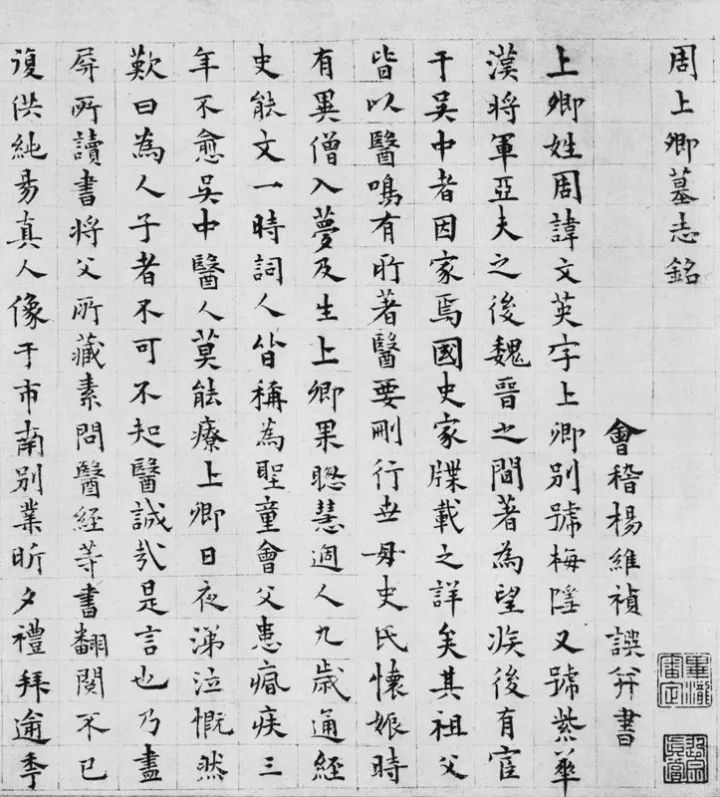 周上卿墓志銘
會稽楊維禎譔并書
上卿姓周諱文英字上卿別號梅隱又號紫華
漢將軍亞夫之後魏晉之間著為望族後有宦
于吳中者因家焉國史家牒載之詳矣其祖父
皆以醫鳴有所著醫要刪行世母史氏懷娠時
有異僧入夢及生上卿果聰慧過人九歲通經
史能文一時詞人皆稱為聖童會父患痼疾三
年不愈吳中醫人莫能療上卿日夜涕泣慨然
歎曰為人子者不可不知醫誠哉是言也乃盡
屏所讀書將父所藏素問醫經等書翻閱不已
復供純昜真人像于市南別業昕夕禮拜逾季
畢瀧審定